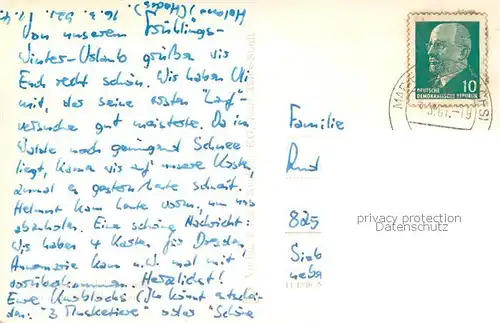 Von unserem Frühlings-
Winter-Urlaub grüßen wir
Euch recht schön. Wir haben Uli
mit, der seine ersten "Lauf"-
versuche gut meisterte. Da im
Walde noch genügend Schnee
liegt, kamen wir auf unsere Kosten,
zumal es gestern/heute schneit.
Helmut kam heute vorm., um uns
abzuholen. Eine schöne Nachricht:
Wir haben 4 Karten für Dresden,
Annemarie kann u.U. mal mit
vorüberkommen. Herzlichst!
Eure Knoblochs (Ihr könnt entschei-
den: "3 Musketiere" oder "Schöne
DEUTSCHE
DEMOKRATISCHE REPUBLIK
10
-19
Familie
825
Sieb
neben
privacy protection
Datenschutz